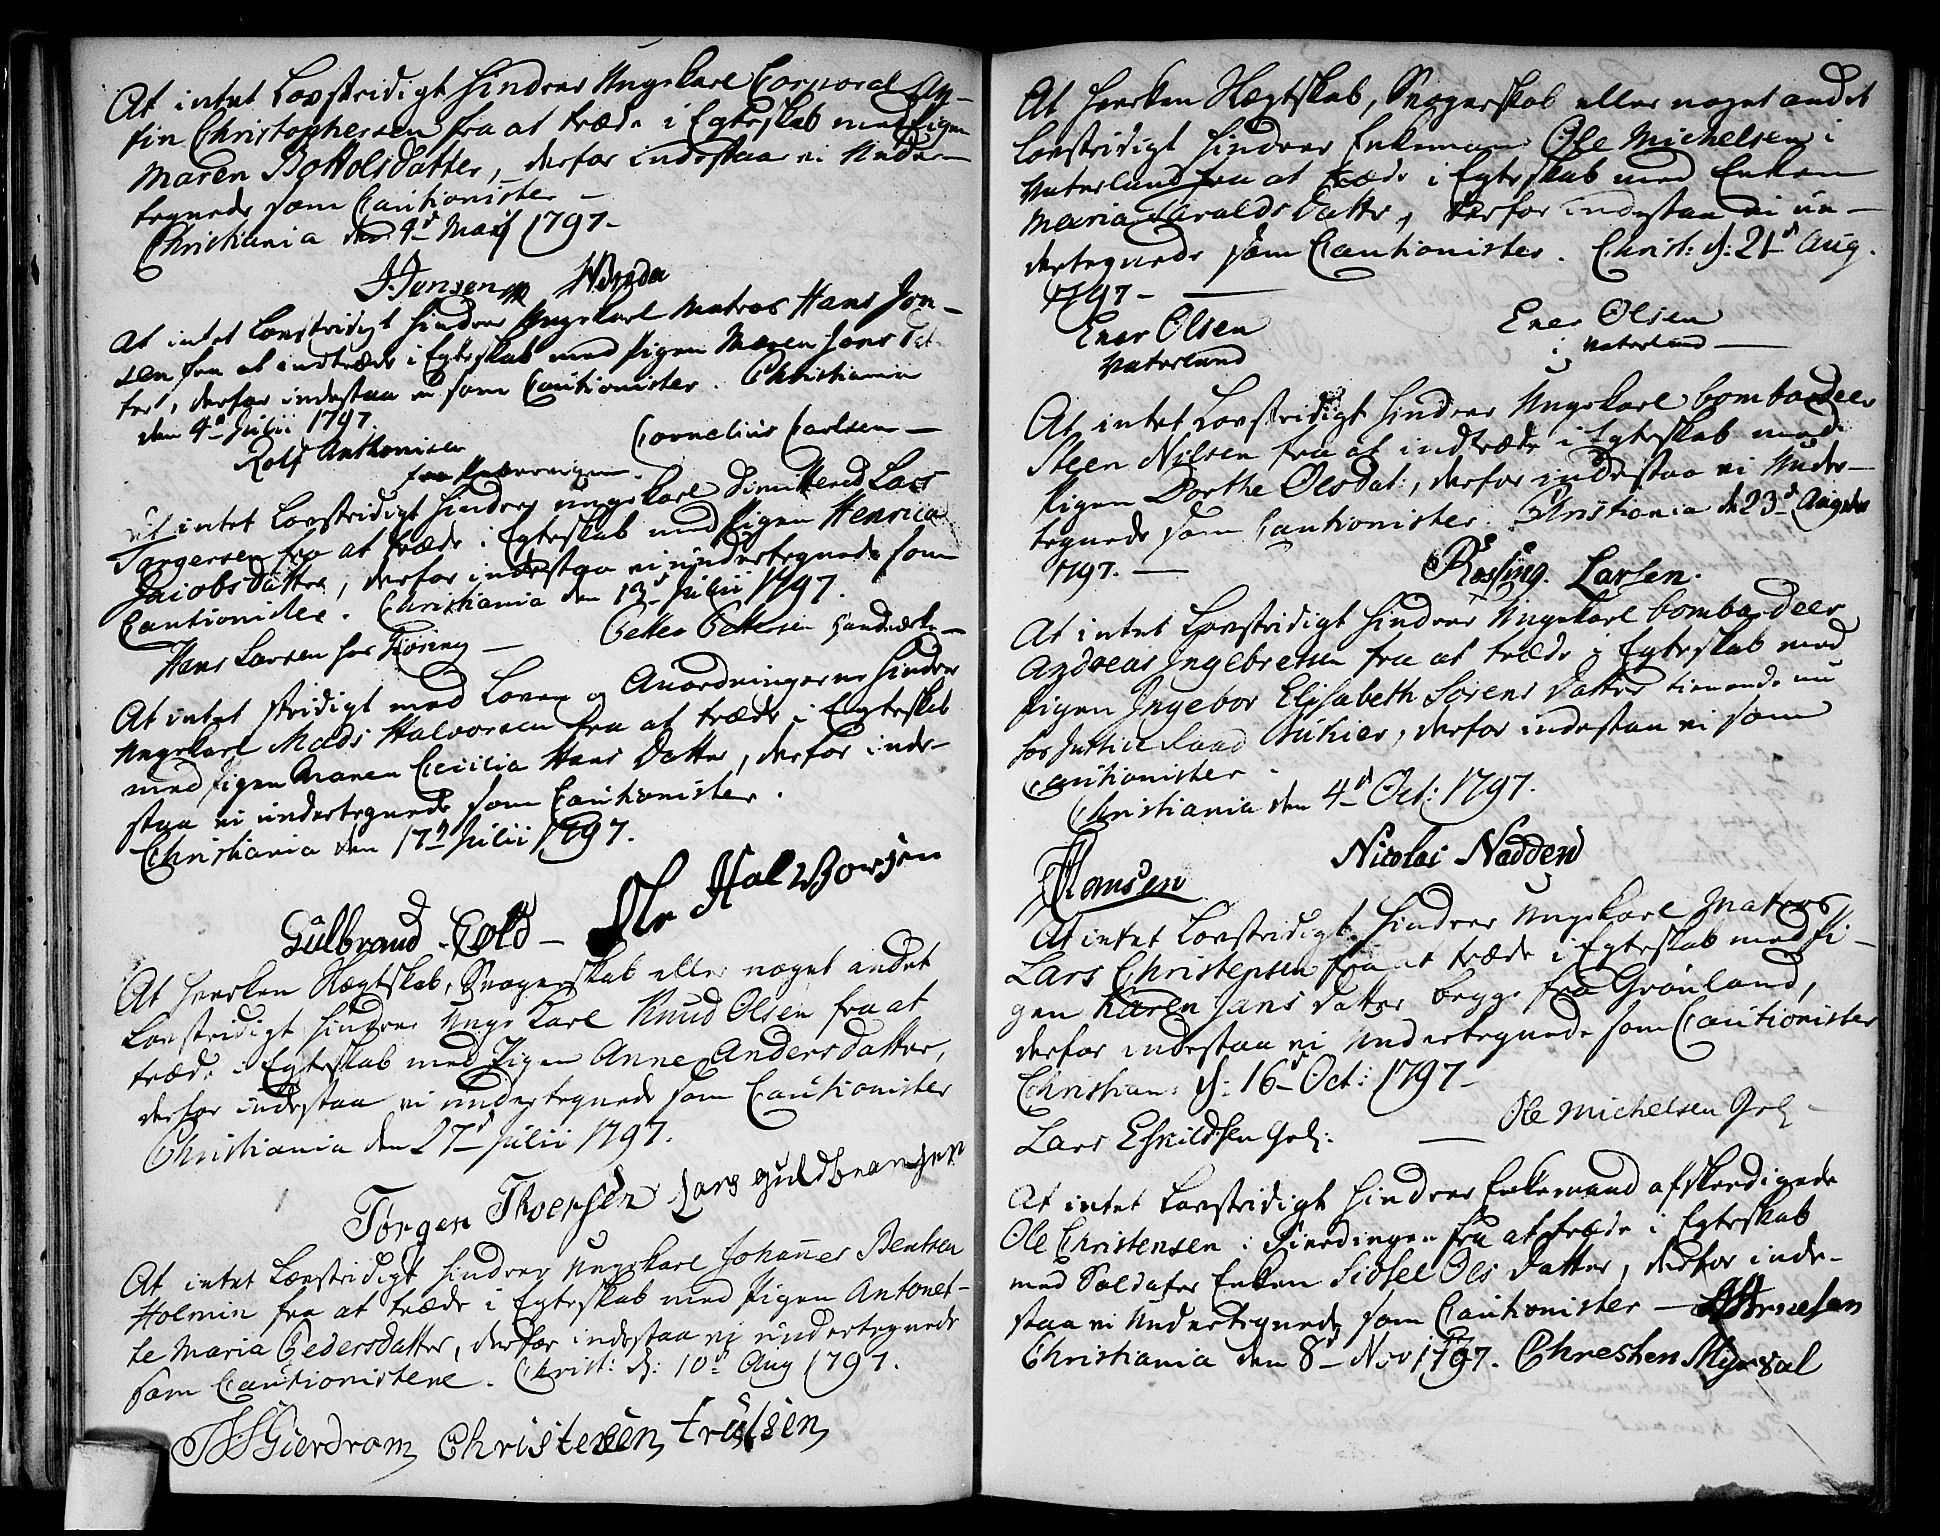 At intet Lovstridigt hindrer Ungekarl Corporal An-
fin Christophersen fra at træde i Egteskab med Pigen
Maren BottolsDatter, derfor indestaar vi Under-
tegnede som Cautionister –
Christiania den 4d Maij 1797 –
JJensen
At intet Lovstridigt hindrer Ungekarl Matros Hans Jon-
sen fra at indtræde i Egteskab med Pigen Maren Jons Dat-
ter, derfor indestaa vi som Cautionister. Christiania
den 4d Julii 1797.
Rolf Anthonisen Cornelius Carlsen –
fra
At intet Lovstridigt hindrer ungekarl Dimittered Lars
Torgersen fra at træde i Egteskab med Pigen Henrica
JacobsDatter, derfor indestaa vi undertegnede som
Cautionister. Christiania den 13d Julii 1797.
Hans Larsen hos – Petter Pettersen
At intet stridigt med Loven og Anordningerne hindrer
Ungekarl Mads Halvorsen fra at træde i Egteskab
med Pigen Maren Cecilia Hans Datter, derfor inde-
staa vi undertegnede som Cautionister.
Christiania den 17d Julii 1797.
Gulbrand Eold – Ole HalWorsen
At hverken Slægtskab, Svogerskab eller noget andet
Lovstridigt hindrer Unge Karl Knud Olsen fra at
træde i Egteskab med Pigen Anne AndersDatter,
derfor indestaa vi undertegnede som Cautionister
Christiania den 27d Julii 1797.
Tørgen Thoersen Lars guldbransen
At intet Lovstridigt hindrer Ungekarl Johanes Bentsen
Holmin fra at træde i Egteskab med Pigen Antonet-
te Maria Pedersdatter, derfor indestaa vi undertegnede
som Cautionistere. Christ: d: 10d Aug 1797.
Gierdrom Christensen trulsen
At hverken Slægtskab, Svogerskab eller noget andet
Lovstridigt hindrer Enkemand Ole Michelsen i
Vaterland fra at træde i Egteskab med Enken
Maria HaraldsDatter, derfor indestaa vi un-
dertegnede som Cautionister. Christ: d: 21d Aug.
1797 –
Ener Olsen Ener Olsen
Vaterland i Vaterland –
At intet Lovstridigt hindrer Ungekarl bombardeer
Steen Nilsen fra at indtræde i Egteskab med
Pigen Dorthe Olsdat:, derfor indestaa vi Under-
tegnede som Cautionister. Christiania d 23d Augusti
1797. – Røssing. Larsen.
At intet Lovstridigt hindrer Ungekarl bombardeer
Andreas Ingebretsen fra at træde i Egteskab med
Pigen Ingebor Elisabeth Sørens Datter tienende nu
hos Justice Raad, derfor indestaa vi som
Cautionister.
Christiania den 4d Oct: 1797.
Hansen Nicolai Nadden
At intet Lovstridigt hindrer Ungekarl Matros
Lars Christensen fra at træde i Egteskab med Pi-
gen Karen Jans Datter begge fra Grønland,
derfor indestaa vi Undertegnede som Cautionister
Christian: d: 16d Oct: 1797 –
Lars Eskildsen Grl: – Ole Michelsen Grl –
At intet Lovstridigt hindrer Enkemand afskedigede
Ole Christensen i Pierdingen fra at træde i Egteskab
med Soldater Enken Sidsel Ols Datter, derfor inde-
staa vi Undertegnede som Cautionister – Arnesen
Christiania den 8d Nov 1797. Chresten Myrdal